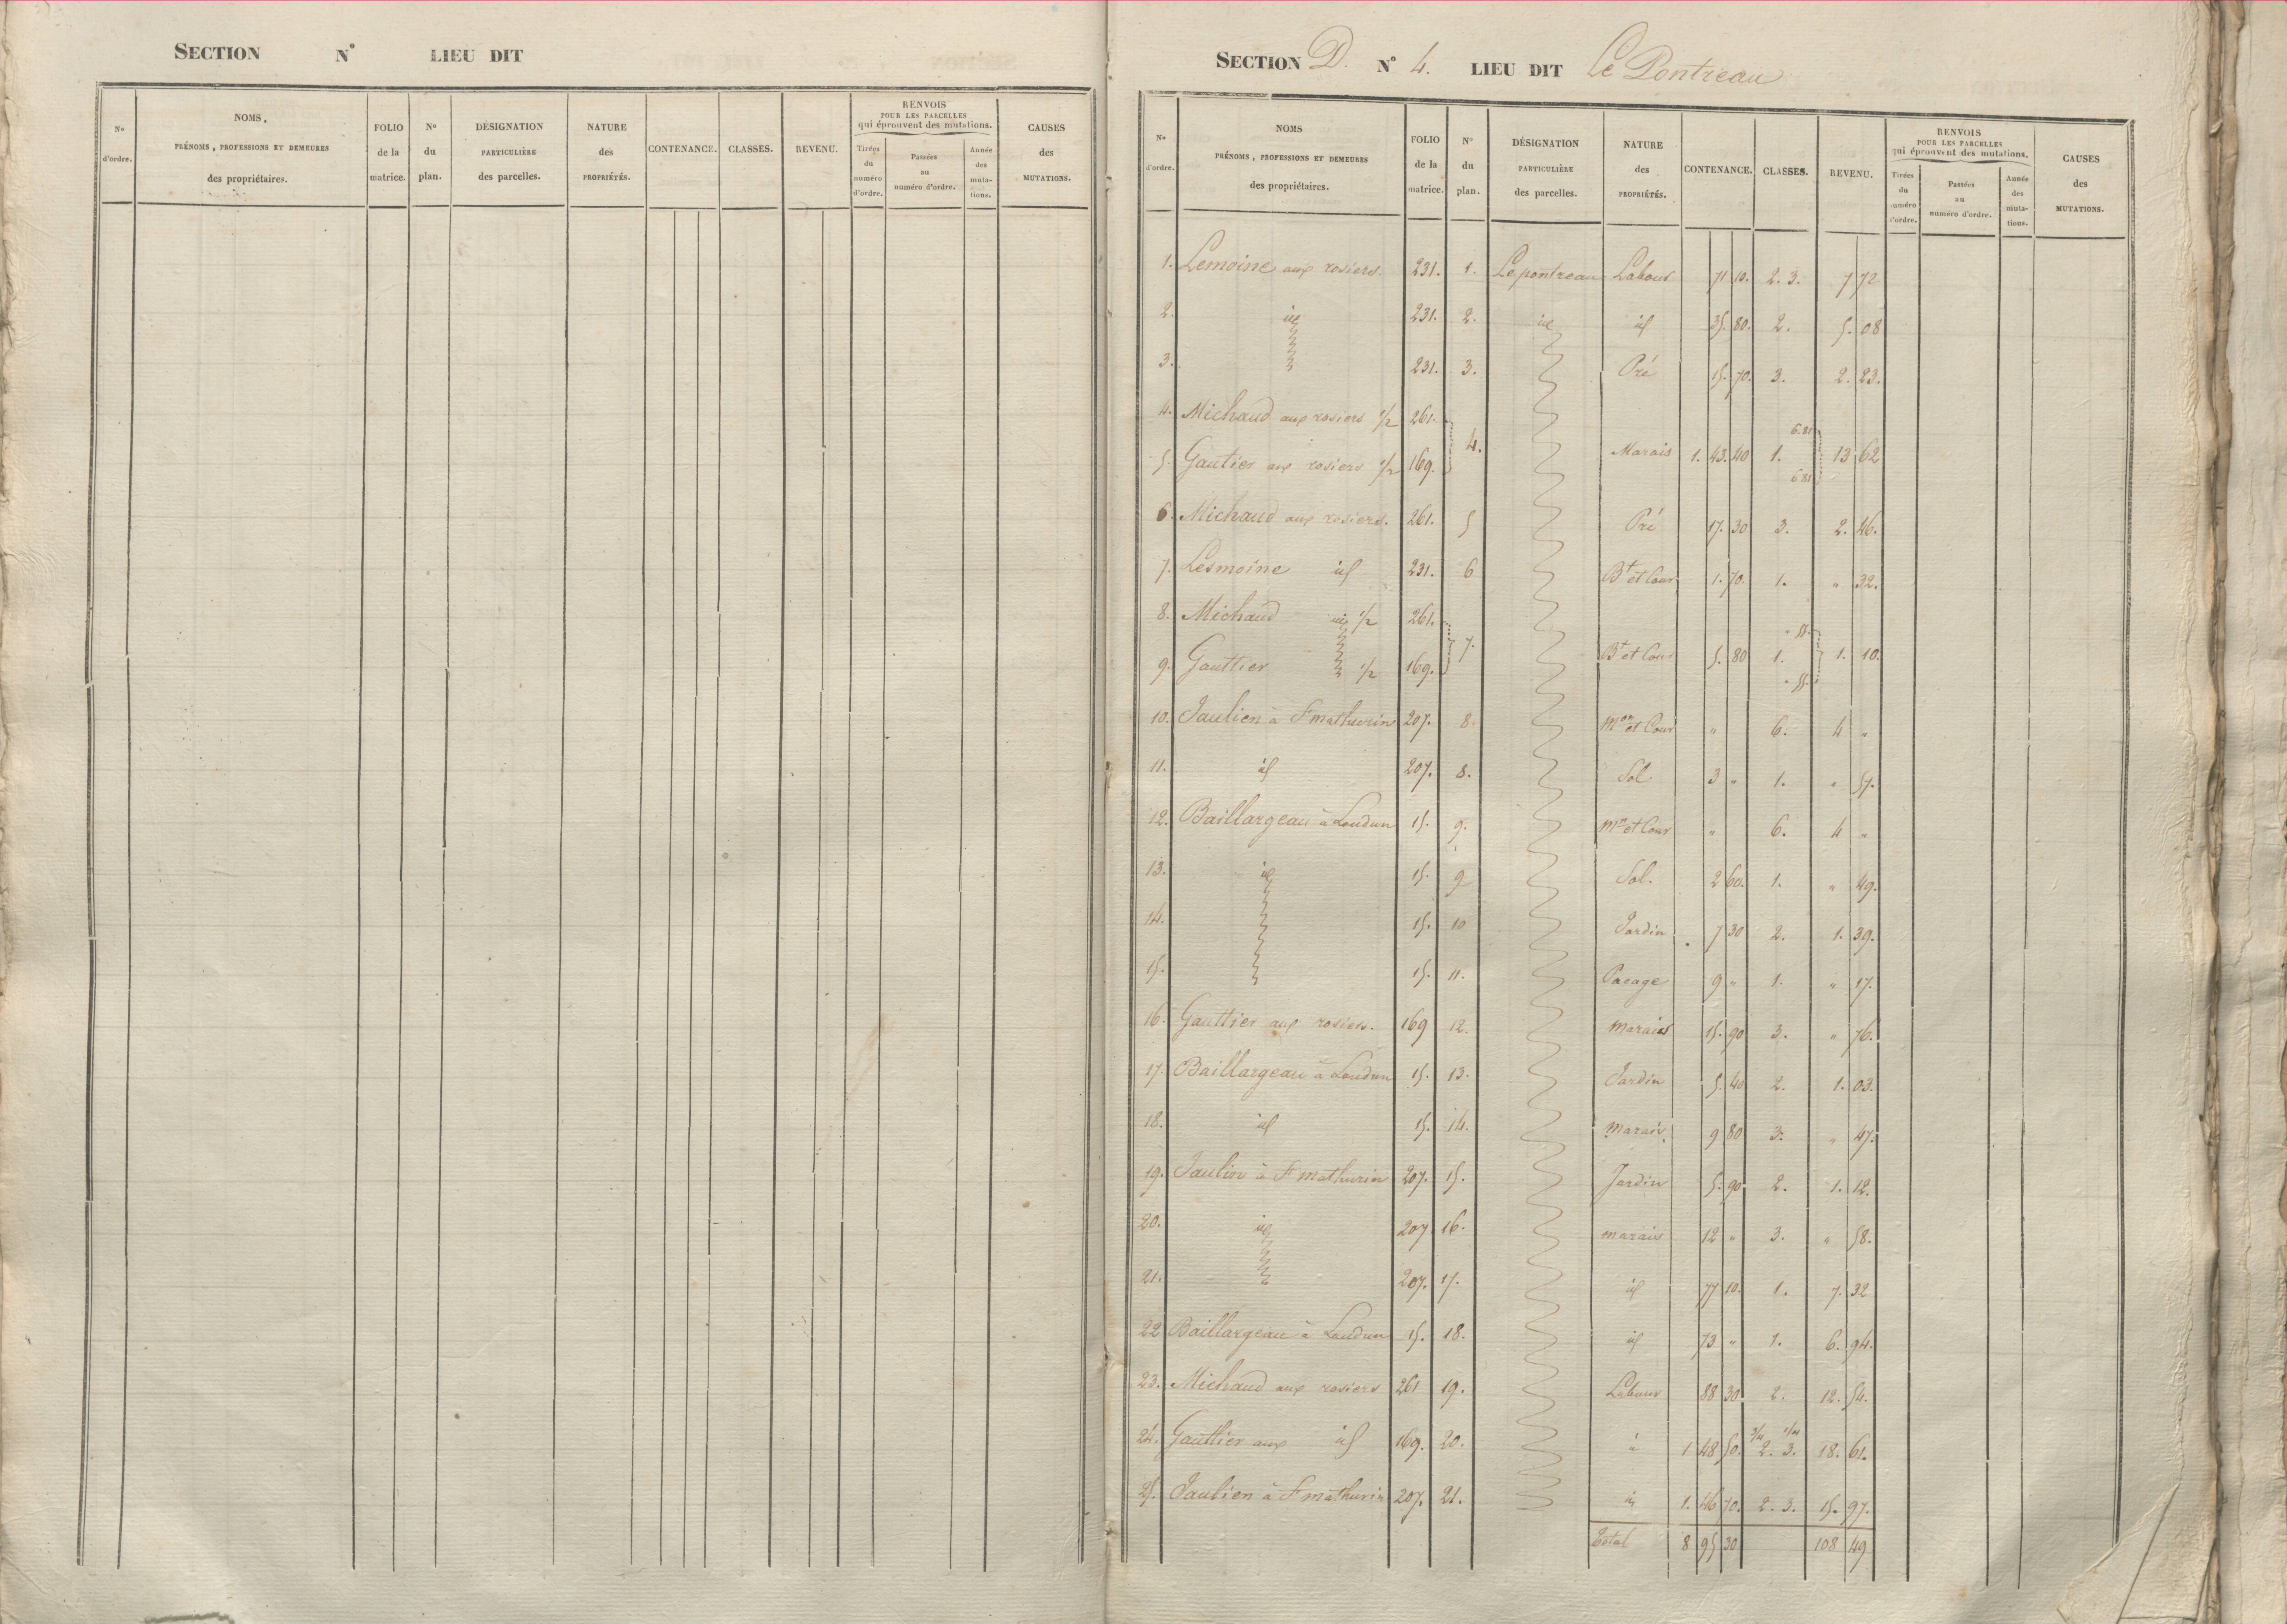 SECTION N° LIEU DIT
N° d'ordre. NOMS, PRÉNOMS, PROFESSIONS ET DEMEURES des propriétaires. FOLIO de la matrice. N° du plan. DÉSIGNATION PARTICULIÈRE des parcelles. NATURE des PROPRIÉTÉS. CONTENANCE. CLASSES. REVENU. RENVOIS POUR LES PARCELLES qui éprouvent des mutations. Tirées du numéro d'ordre. Passées au numéro d'ordre. Année des mutations. CAUSES des MUTATIONS.
SECTION D. N° 4. LIEU DIT Le Pontreau
N° d'ordre. NOMS PRÉNOMS, PROFESSIONS ET DEMEURES des propriétaires. FOLIO de la matrice. N° du plan. DÉSIGNATION PARTICULIÈRE des parcelles. NATURE des PROPRIÉTÉS. CONTENANCE. CLASSES. REVENU. RENVOIS POUR LES PARCELLES qui éprouvent des mutations. Tirées du numéro d'ordre. Passées au numéro d'ordre. Année des mutations. CAUSES des MUTATIONS.
1. Lemoine aux rosiers. 231. 1. Le pontreau Labour 71 10. 2. 3. 7 72
2. id 231. 2. id id 35. 80. 2. 5. 08
3. 231. 3. Pré 15. 70. 3. 2. 23.
4. Michaud aux rosiers 1/2 261. 4. Marais 1. 43. 40 1. 6.81 13 62
5. Gautier aux rosiers 1/2 169. 6.81
6. Michaud aux rosiers. 261. 5 Pré 17. 30 3. 2. 46.
7. Lesmoine id 231. 6 Bt et Cour 1. 70. 1. " 32.
8. Michaud id 1/2 261. 7. Bt et Cour 5. 80 1. " 55. 1. 10.
9. Gauttier 1/2 169. " 55.
10. Jaulien à St mathurin 207. 8. Mon et Cour " 6. 4 "
11. id 207. 8. Sol 3 " 1. " 57.
12. Baillargeau à Loudun 15. 9. Mon et Cour " 6. 4 "
13. id 15. 9 Sol. 2 60. 1. " 49.
14. 15. 10 Jardin 7 30 2. 1. 39.
15. 15. 11. Pacage 9 " 1. " 17.
16. Gauttier aux rosiers. 169 12. marais 15. 90 3. " 76.
17 Baillargeau à Loudun 15. 13. Jardin 5. 40 2. 1. 03.
18. id 15. 14. marais 9 80 3. " 47.
19. Jaulien à St mathurin 207. 15. Jardin 5. 90 2. 1. 12.
20. id 207 16. marais 12 " 3. " 58.
21. 207. 17. id 77 10. 1. 7. 32
22 Baillargeau à Loudun 15. 18. id 73 " 1. 6. 94.
23. Michaud aux rosiers 261 19. Labour 88 30 2. 12. 54.
24. Gauttier aux id 169. 20. id 1 48 50. 3/4 2. 1/4 3. 18. 61.
25. Jaulien à St mathurin 207. 21. id 1. 46 70. 2. 3. 15. 97.
Total 8 95 30 108 49